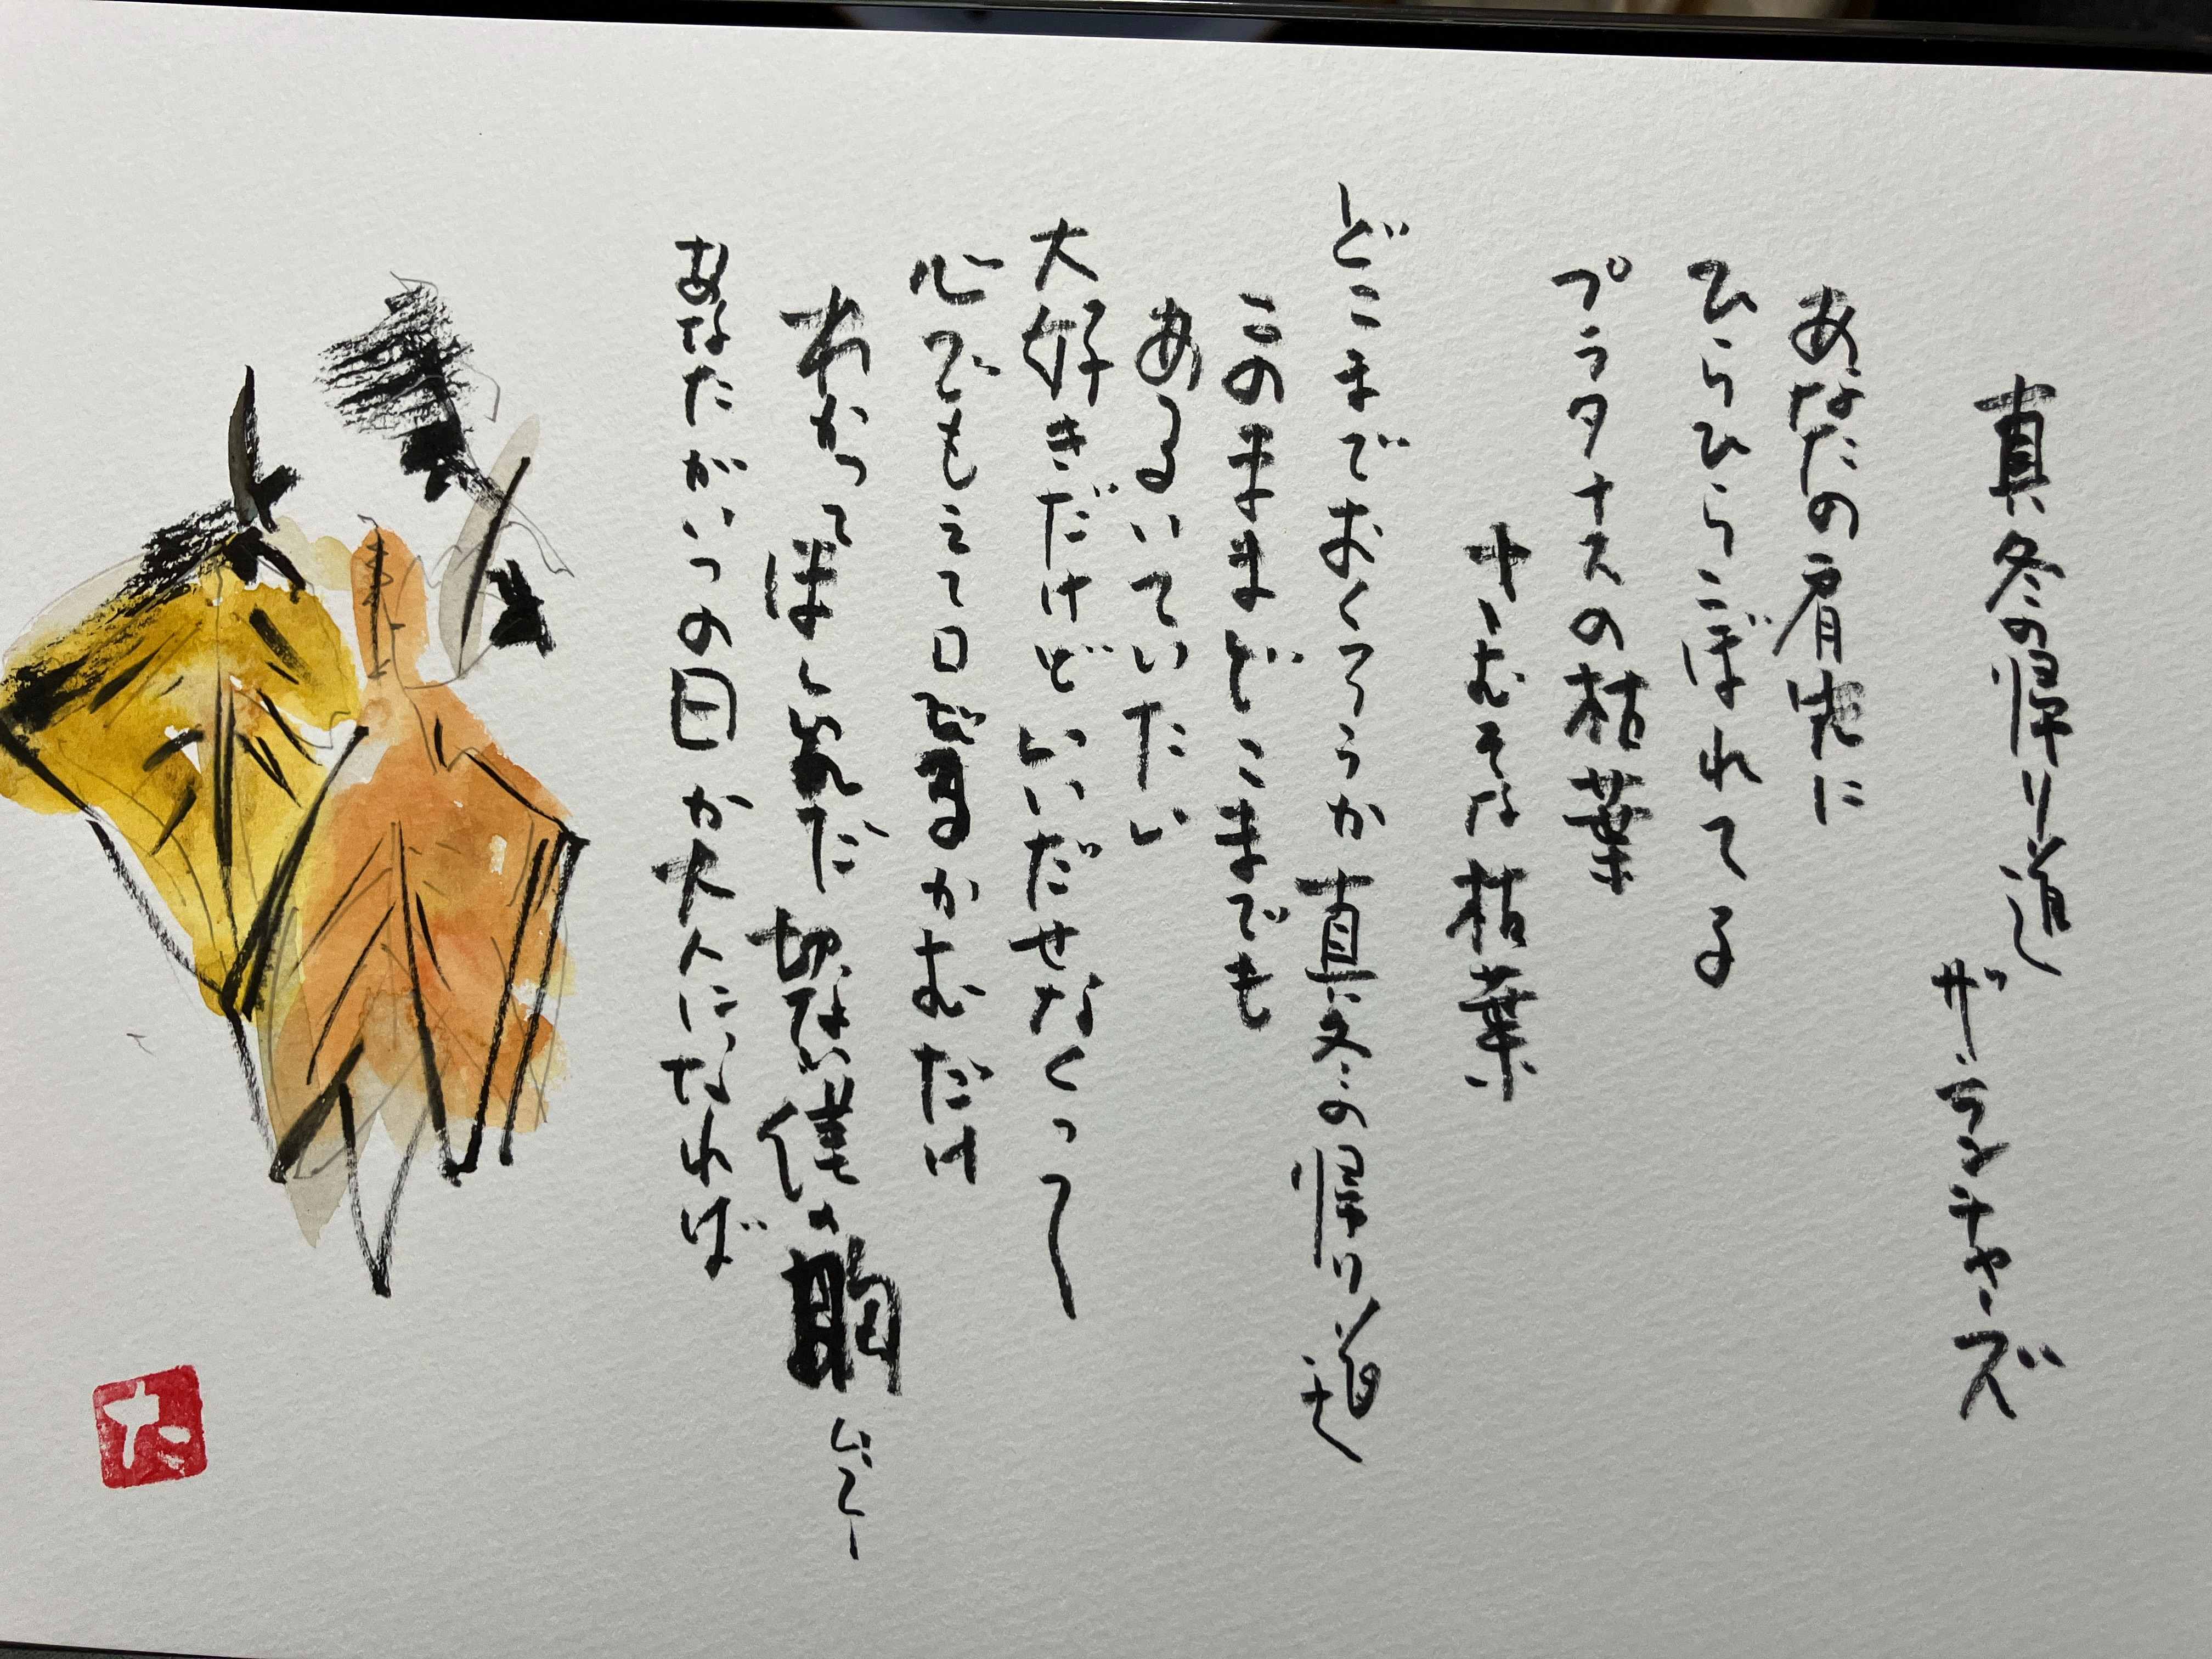 真冬の帰り道
ザ・ランチャーズ
あなたの肩先に
ひらひらこぼれてる
プラタナスの枯葉
さむそな枯葉
どこまでおくろうか真冬の帰り道
このままどこまでも
あるいていたい
大好きだけどいいだせなくって
心でもえて口唇かむだけ
わかってほしいんだ切ない僕の胸
あなたがいつの日か大人になれば
た